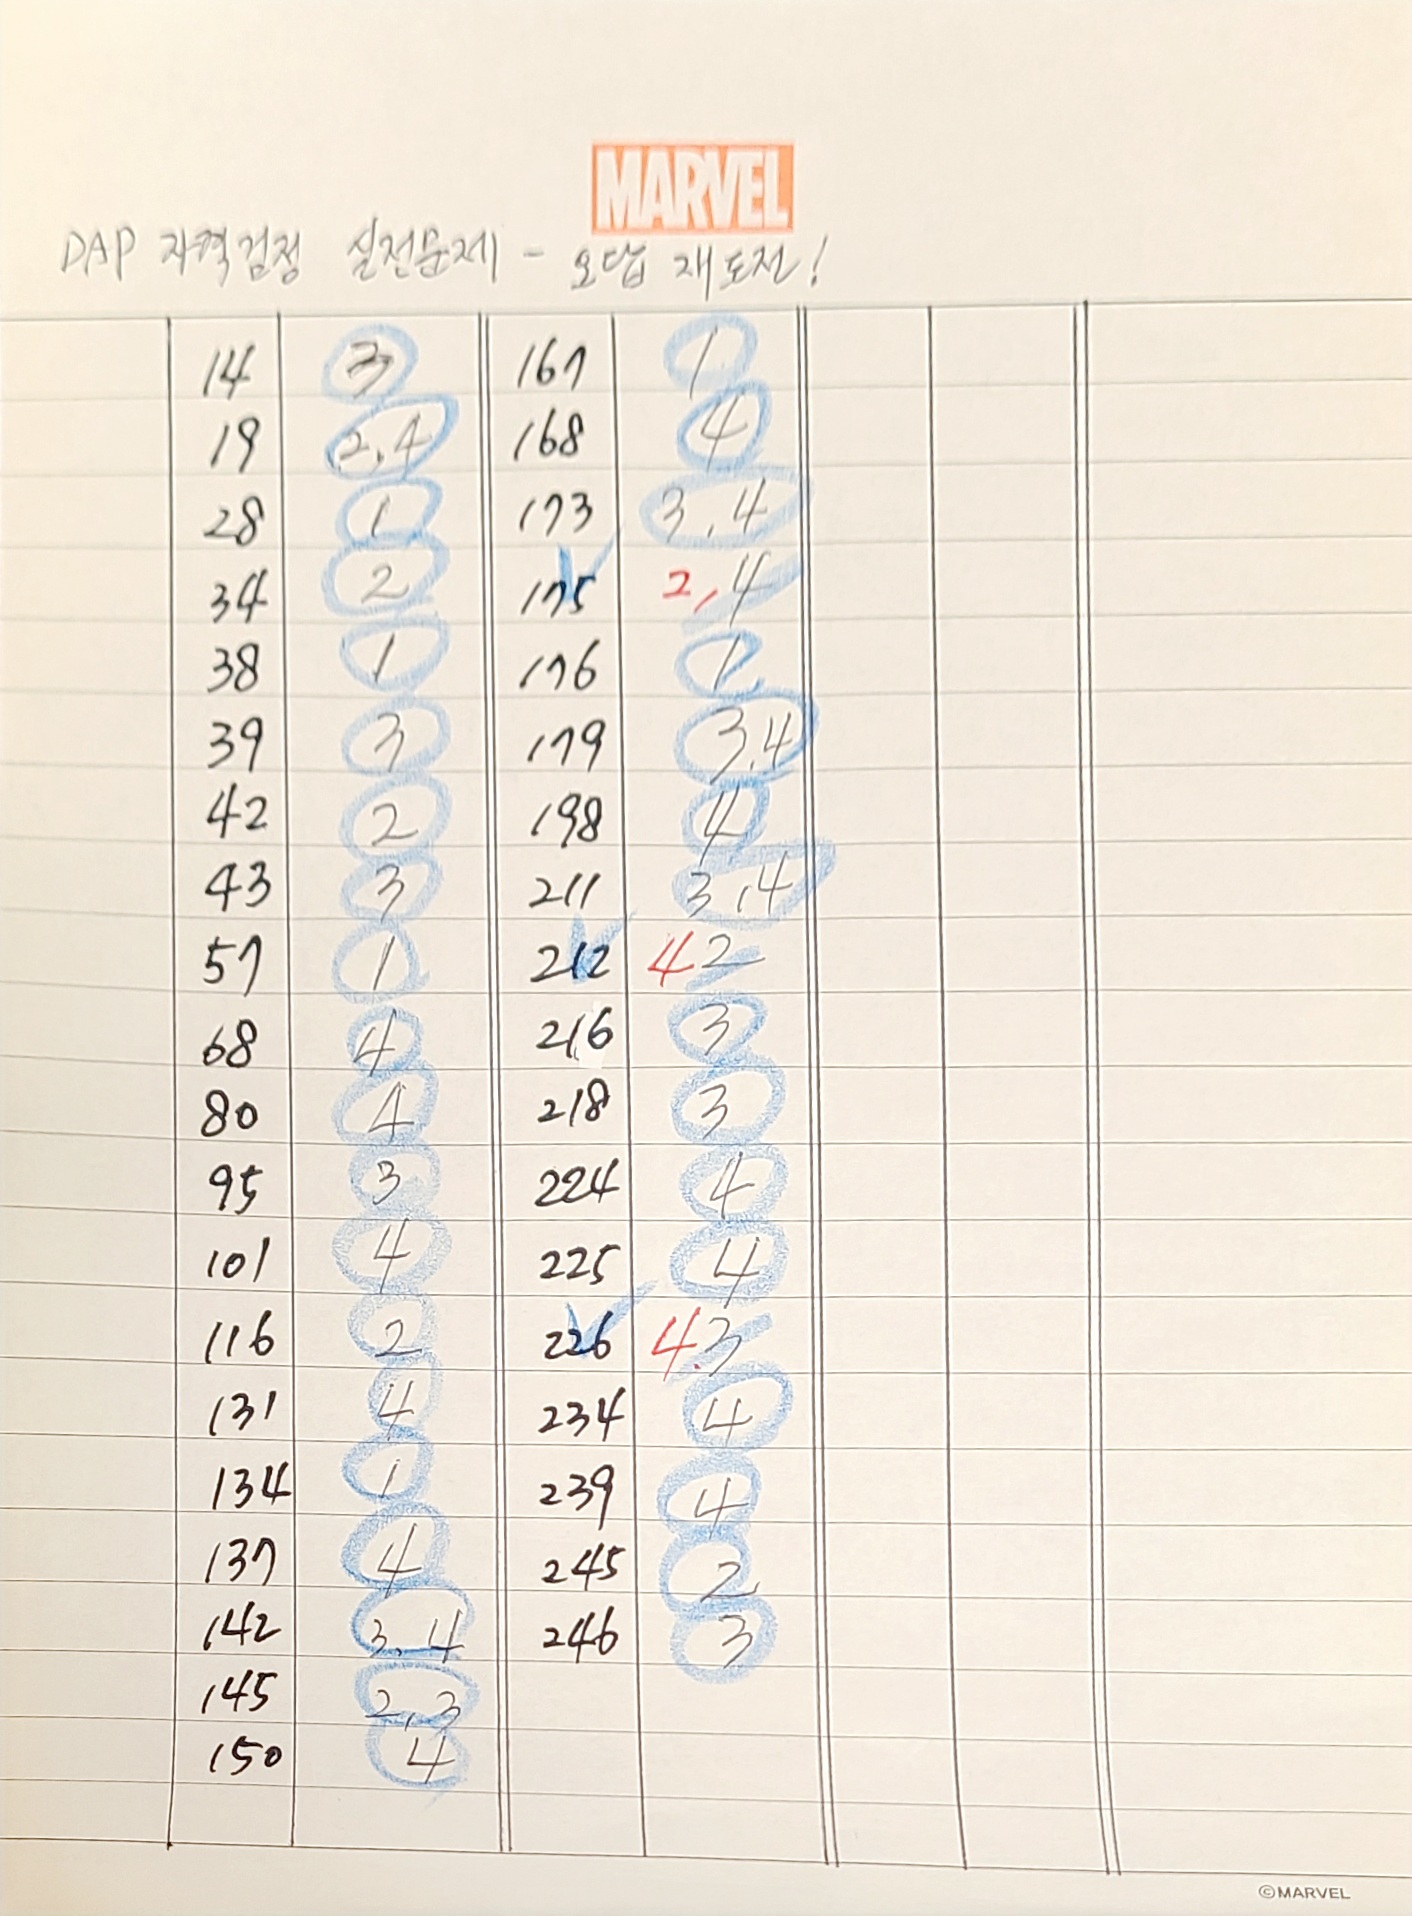 MARVEL
DAP 자격검정 실전문제 - 오답 재도전!
14 3 167 1
19 2,4 168 4
28 1 173 3,4
34 2 175 2,4
38 1 176 1
39 3 179 3,4
42 2 198 4
43 3 211 3,4
57 1 212 4 2
68 4 216 3
80 4 218 3
95 3 224 4
101 4 225 4
116 2 226 4.3
131 4 234 4
134 1 239 4
137 4 245 2
142 3,4 246 3
145 2,3
150 4
©MARVEL